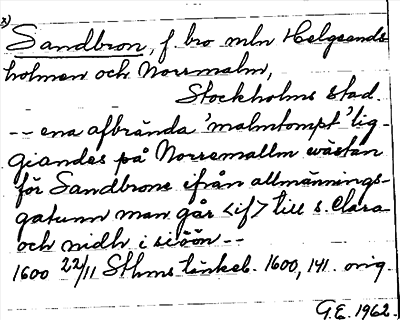 x)
Sandbron, f. bro mln Helgeands
holmen och Norrmalm,
Stockholms stad.
-- ena afbrända 'malmtompt' lig-
giandes på Norremallm wästan
för Sandbrone ifrån allmännings-
gatunn man går <if> till s. Clara
och nidh i siöön --
1600 22/11 Sthms tänkeb. 1600, 141. orig.
G.E. 1962.